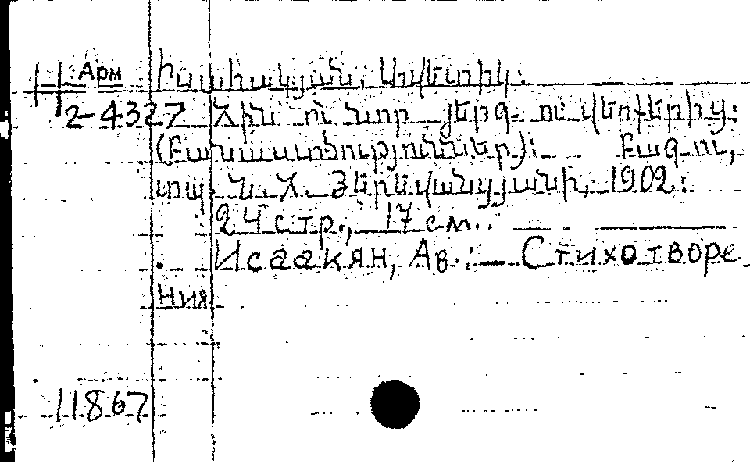 Арм Իսահակյան, Ավետիք:
2-4327 Հին ու նոր յերգ. ու վերքերից:
(Բանաստեղծություններ): Բագու,
տպ. Ն. Հ. Երևանցյանի, 1902:
24 стр., 17 см.
Исаакян, Ав.: Стихотворе
ния
11867